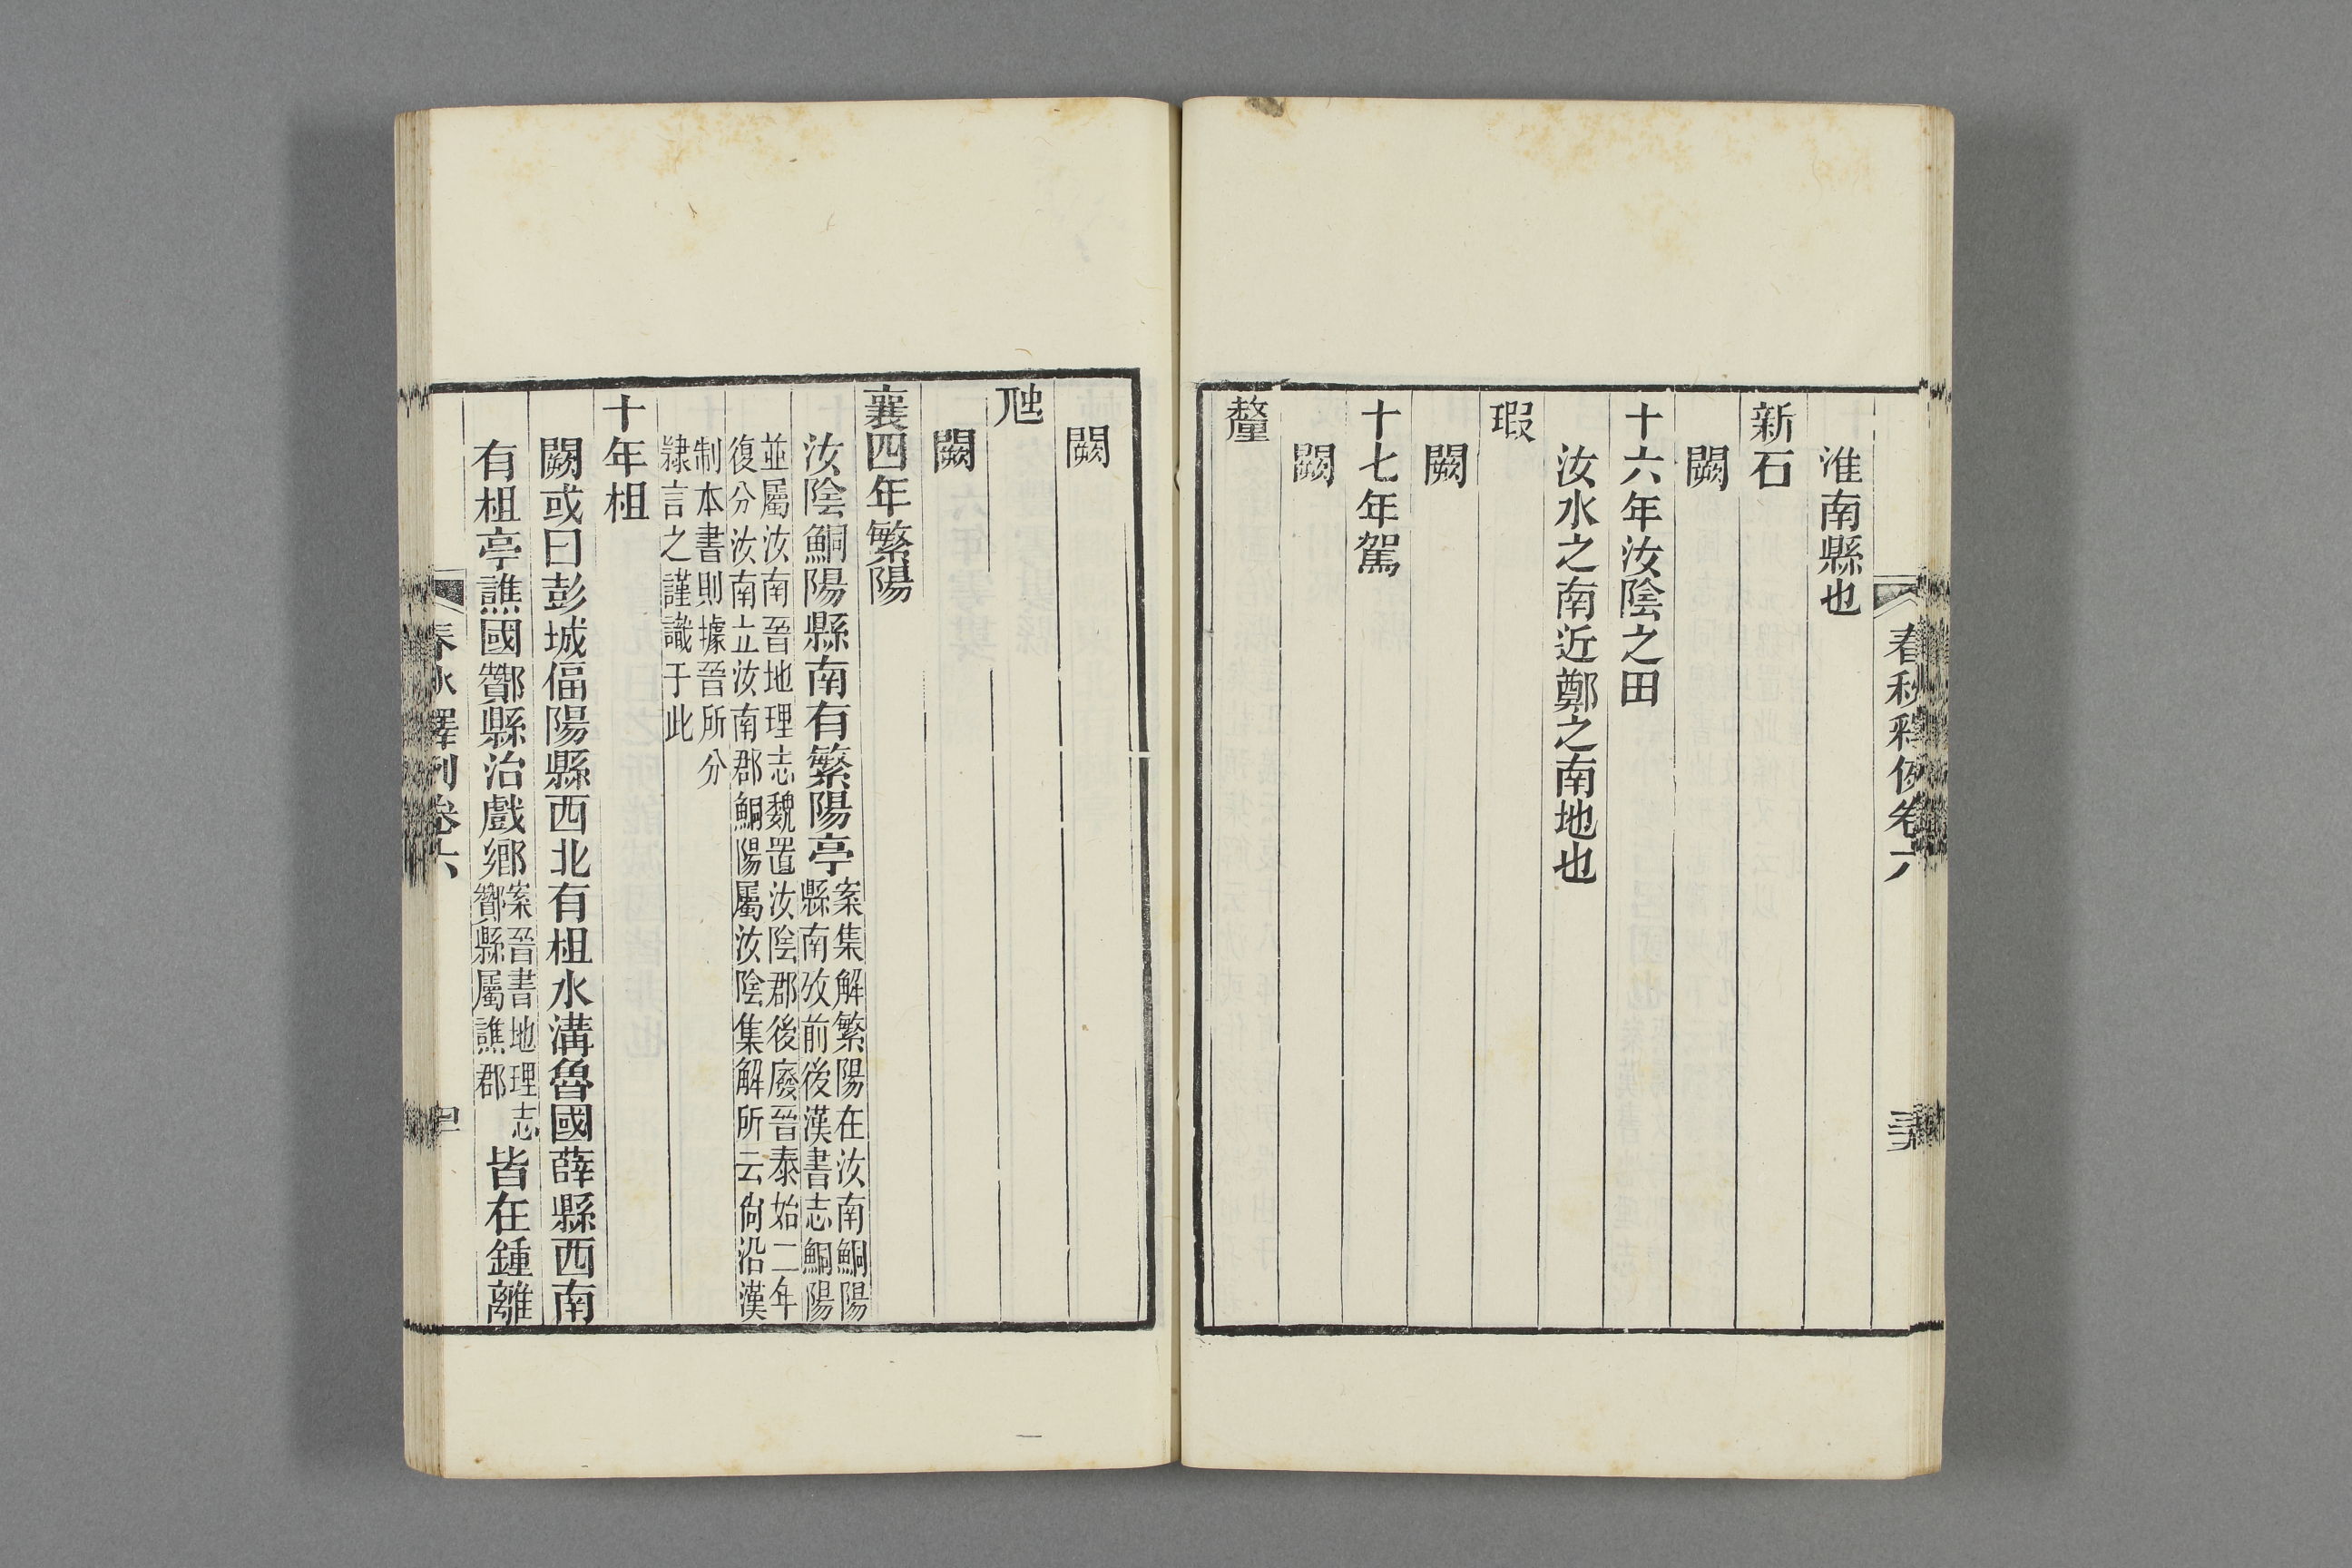 春秋釋例卷六
淮南縣也
新石
闕
十六年汝陰之田
汝水之南近鄭之南地也
瑕
闕
十七年駕
闕
釐
闕
虺
闕
襄四年繁陽
汝陰鮦陽縣南有繁陽亭案集解繁陽在汝南鮦陽
縣南攷前後漢書志鮦陽
並屬汝南晉地理志魏置汝陰郡後廢晉泰始二年
復分汝南立汝南郡鮦陽屬汝陰集解所云尙沿漢
制本書則據晉所分
隸言之謹識于此
十年柤
闕或曰彭城偪陽縣西北有柤水溝魯國薛縣西南
有柤亭譙國酇縣治戲鄉案晉書地理志
酇縣屬譙郡
皆在鍾離
春秋釋例卷六